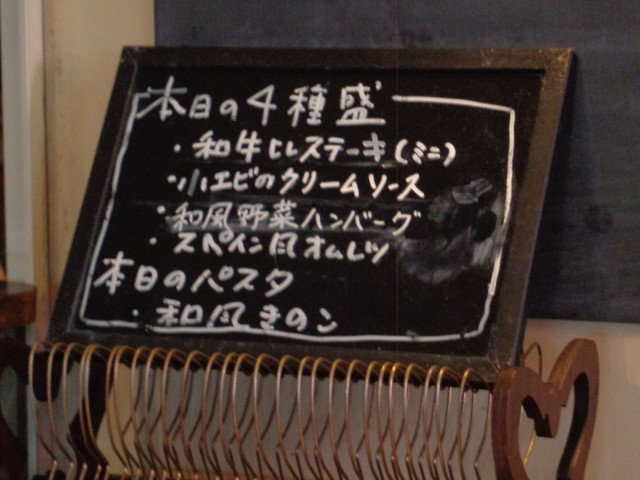 本日の4種盛
・和牛ヒレステーキ(ミニ)
・小エビのクリームソース
・和風野菜ハンバーグ
・スペイン風オムレツ
本日のパスタ
・和風きのこ